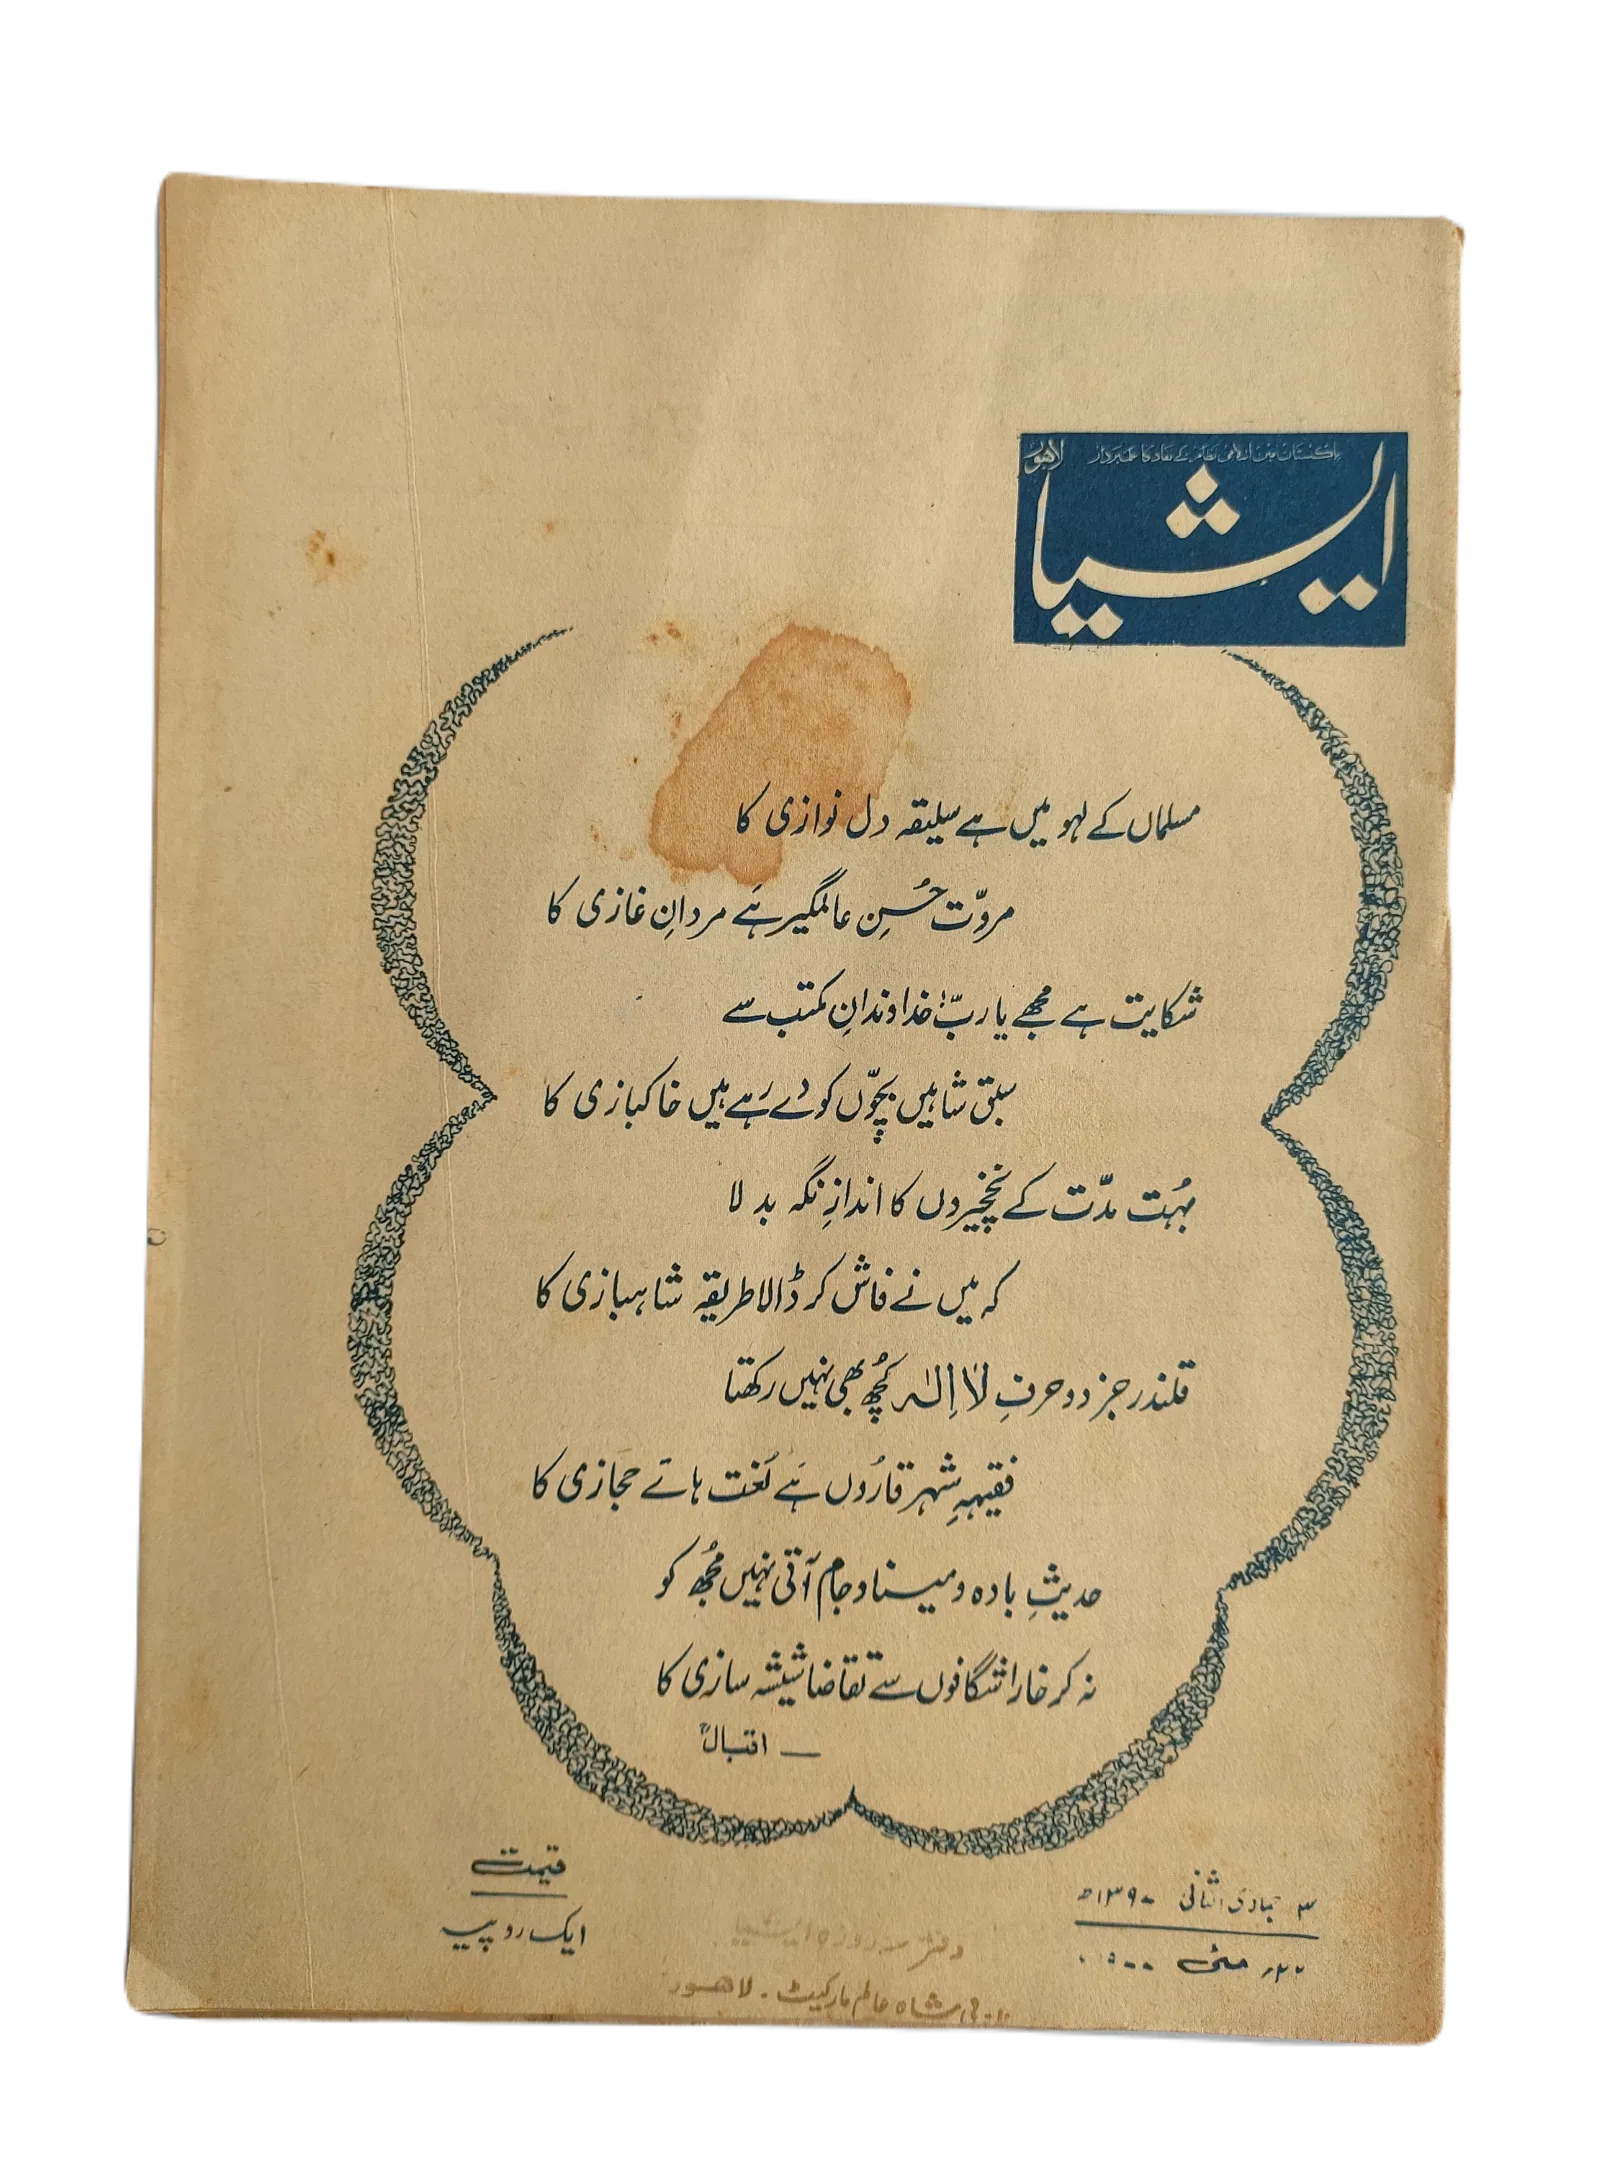 پاکستان میں اسلامی نظام کے نفاذ کا علمبردار
لاہور
ایشیا
مسلماں کے لہو میں ہے سلیقہ دل نوازی کا
مروّت حُسنِ عالمگیر ہَے مردانِ غازی کا
شکایت ہے مجھے یا ربّ! خداوندانِ مکتب سے
سبق شاہیں بچّوں کو دے رہے ہیں خاکبازی کا
بہُت مدّت کے نخچیروں کا اندازِ نگہ بدلا
کہ میں نے فاش کر ڈالا طریقہ شاہبازی کا
قلندر جز دو حرفِ لا اِلٰہ کُچھ بھی نہیں رکھتا
فقیہہِ شہر قارُوں ہَے لُغت ہائے حجَازی کا
حدیثِ بادہ و مینا و جام آتی نہیں مُجھ کو
نہ کر خارا شگافوں سے تقاضا شیشہ سازی کا
— اقبالؒ
۳ جمادی الثانی ۱۳۹۷ھ
مئی
قیمت
ایک روپیہ
دفتر سہ روزہ ایشیا
شاہ عالم مارکیٹ ۔ لاہور